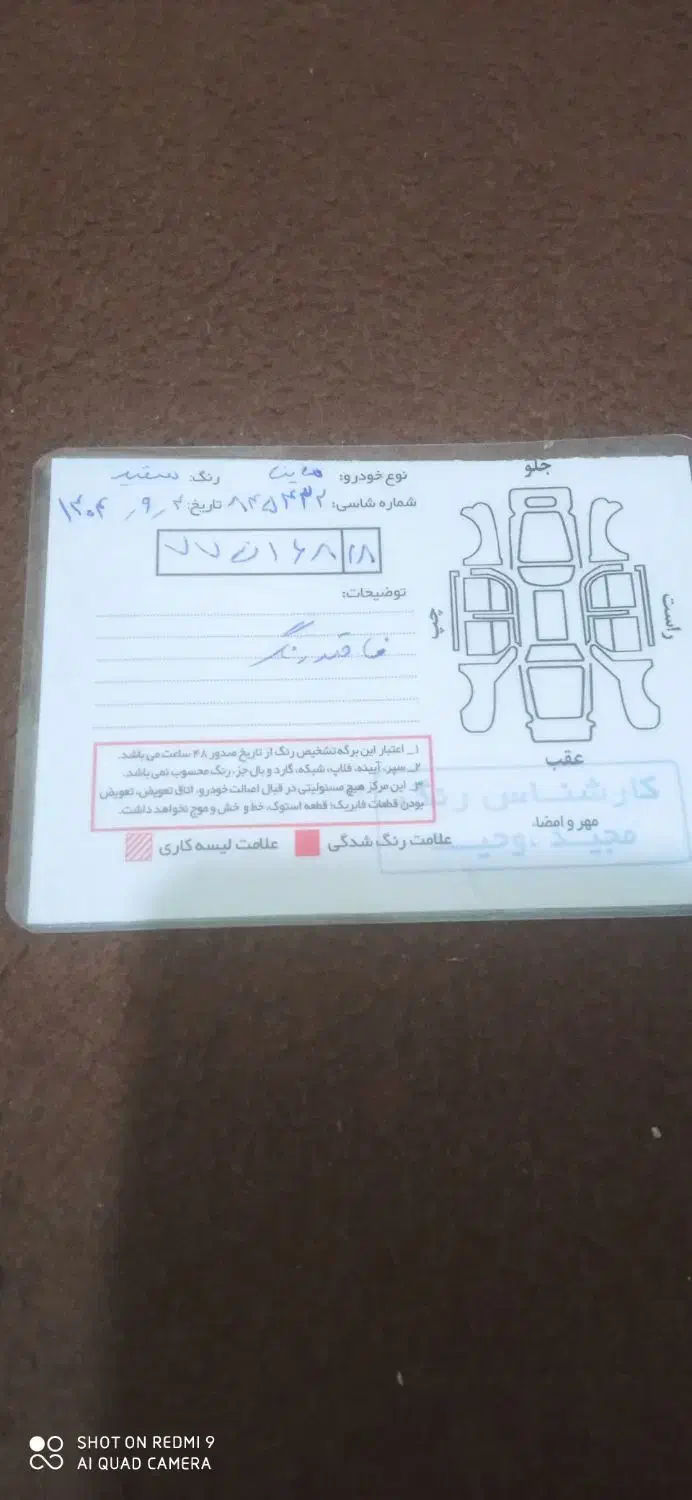 جلو
نوع خودرو: ساینا رنگ: سفید
شماره شاسی: ۸۴۵۴۳۲ تاریخ: ۱۴۰۴٫۹٫۴
توضیحات:
راست
چپ
فاقد رنگ
۱_ اعتبار این برگه تشخیص رنگ از تاریخ صدور ۴۸ ساعت می باشد.
۲_ سپر، آیینه، فلاپ، شبکه، گارد و بال جز، رنگ محسوب نمی باشد.
۳_ این مرکز هیچ مسئولیتی در قبال اصالت خودرو، اتاق تعویض، تعویض
بودن قطعات فابریک؛ قطعه استوک، خط و خش و موج نخواهد داشت.
عقب
کارشناس رنگ
مهر و امضاء
مجید
علامت رنگ شدگی علامت لیسه کاری
SHOT ON REDMI 9
AI QUAD CAMERA